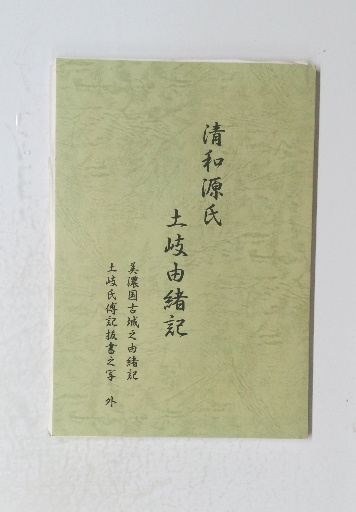 清和源氏
土岐由緒記
美濃国古城之由緒記
土岐氏傳記抜書之写 外